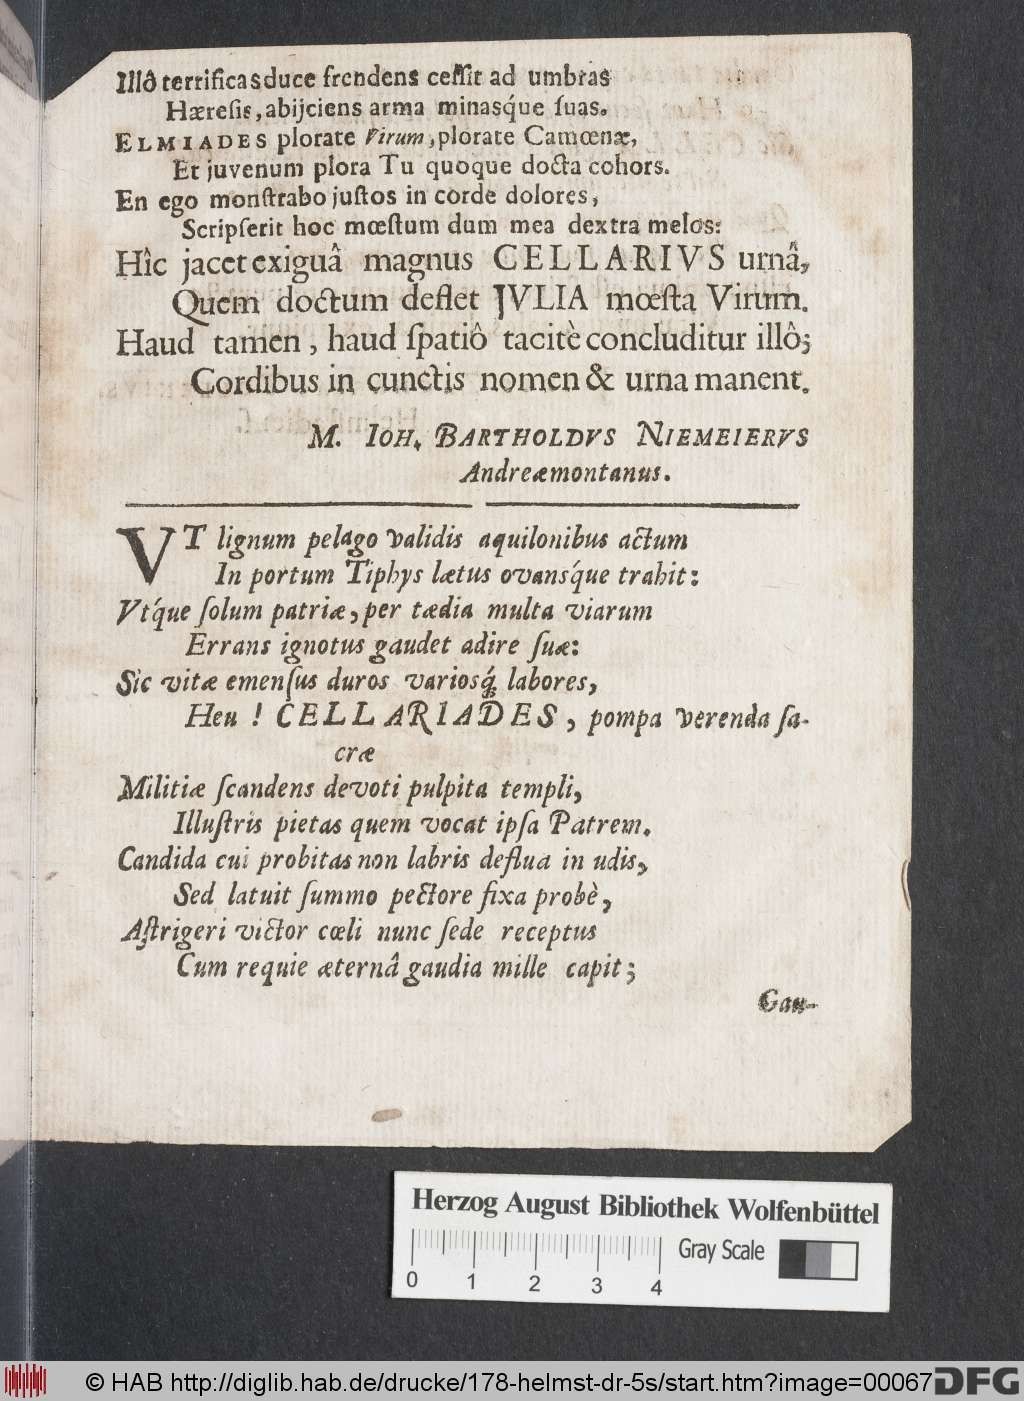 Illô terrificas duce frendens ceſſit ad umbras
Hæreſis, abijciens arma minasq́ue ſuas.
ELMIADES plorate Virum, plorate Camœnæ,
Et juvenum plora Tu quoque docta cohors.
En ego monſtrabo juſtos in corde dolores,
Scripſerit hoc mœſtum dum mea dextra melos:
Hîc jacet exiguâ magnus CELLARIVS urnâ,
Quem doctum deflet JVLIA mœſta Virum.
Haud tamen, haud ſpatiô tacitè concluditur illô;
Cordibus in cunctis nomen & urna manent.
M. IOH. BARTHOLDVS NIEMEIERVS
Andreæmontanus.
VT lignum pelago validis aquilonibus actum
In portum Tiphys lætus ovansq́ue trahit:
Vtq́ue ſolum patriæ, per tædia multa viarum
Errans ignotus gaudet adire ſuæ:
Sic vitæ emenſus duros variosq́; labores,
Heu! CELLARIADES, pompa verenda ſa-
cræ
Militiæ ſcandens devoti pulpita templi,
Illuſtris pietas quem vocat ipſa Patrem.
Candida cui probitas non labris deflua in udis,
Sed latuit ſummo pectore fixa probè,
Aſtrigeri victor cœli nunc ſede receptus
Cum requie æternâ gaudia mille capit;
Gau-
Herzog August Bibliothek Wolfenbüttel
Gray Scale
0 1 2 3 4
© HAB http://diglib.hab.de/drucke/178-helmst-dr-5s/start.htm?image=00067
DFG